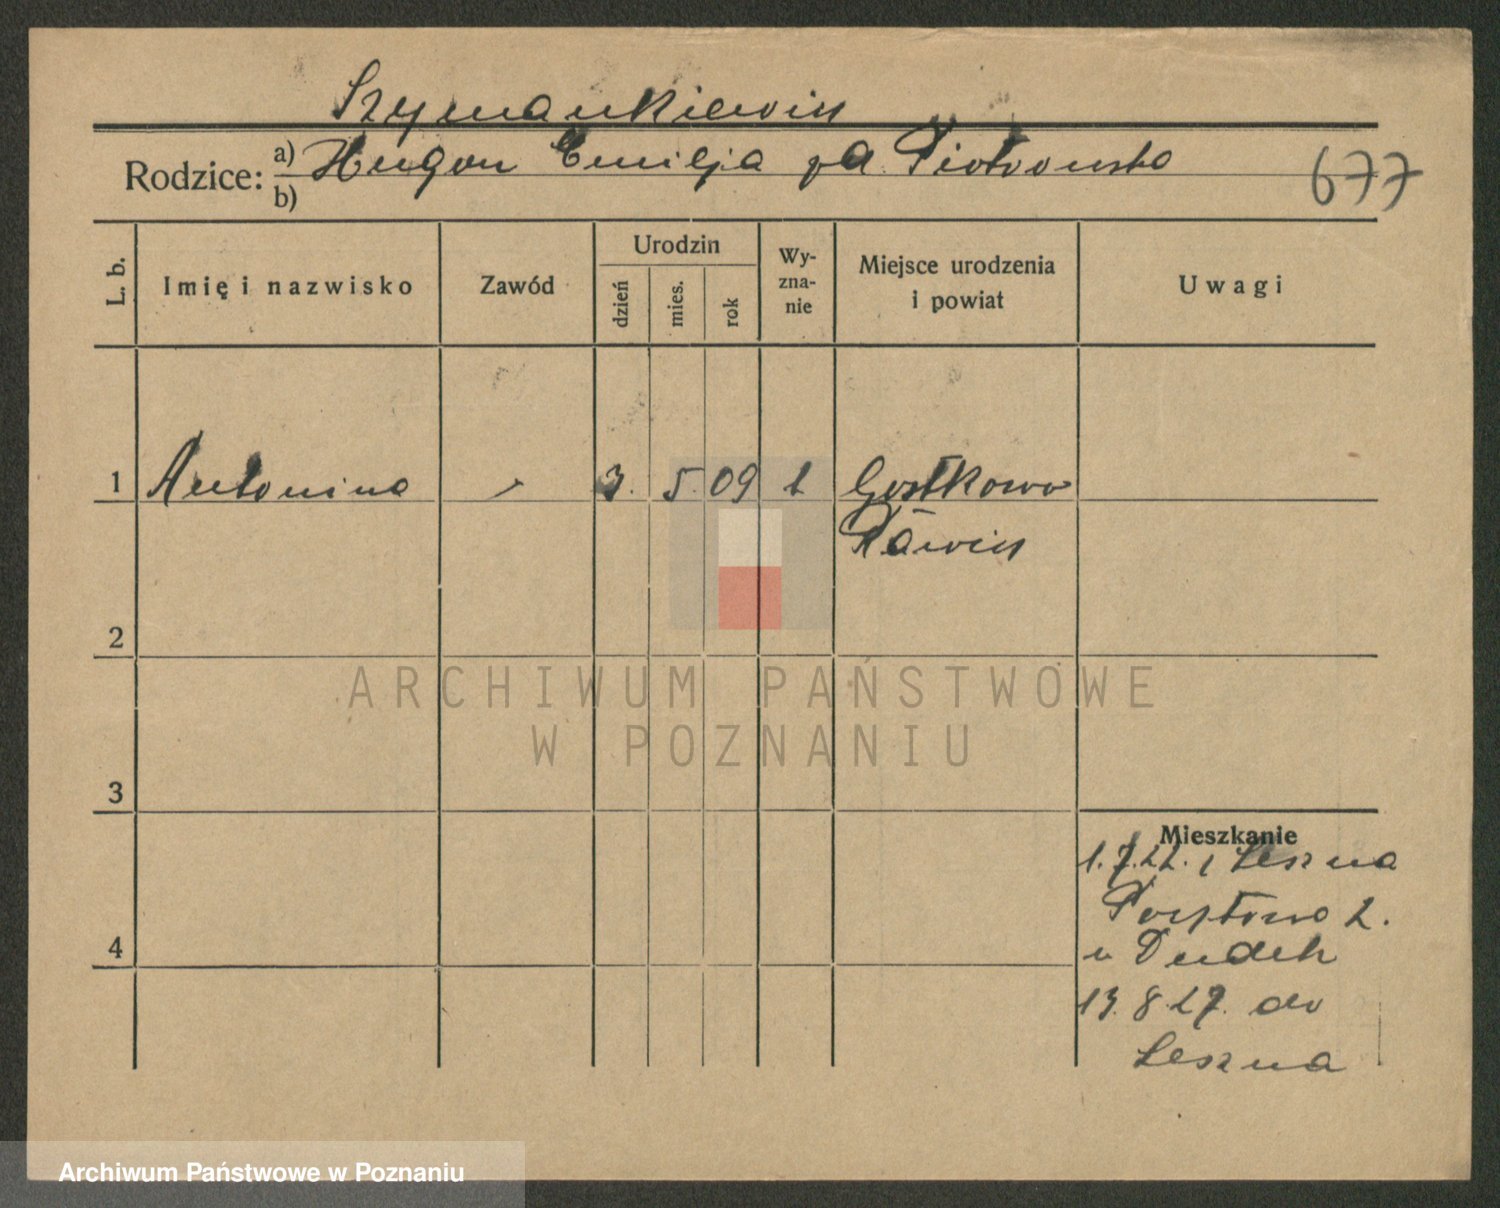 Szymankiewicz
Rodzice: a) Hugon Emilja Piotrowska
b)
677
L. b.
Imię i nazwisko
Zawód
Urodzin
dzień
mies.
rok
Wy-
zna-
nie
Miejsce urodzenia
i powiat
Uwagi
1 Antonina 3. 5. 09 Gostkowo
Rawicz
2
3
4
Mieszkanie
1.7.22. z Leszna
Pocztowa 2.
u Dudek
13.8.27. do
Leszna
ARCHIWUM PAŃSTWOWE
W POZNANIU
Archiwum Państwowe w Poznaniu